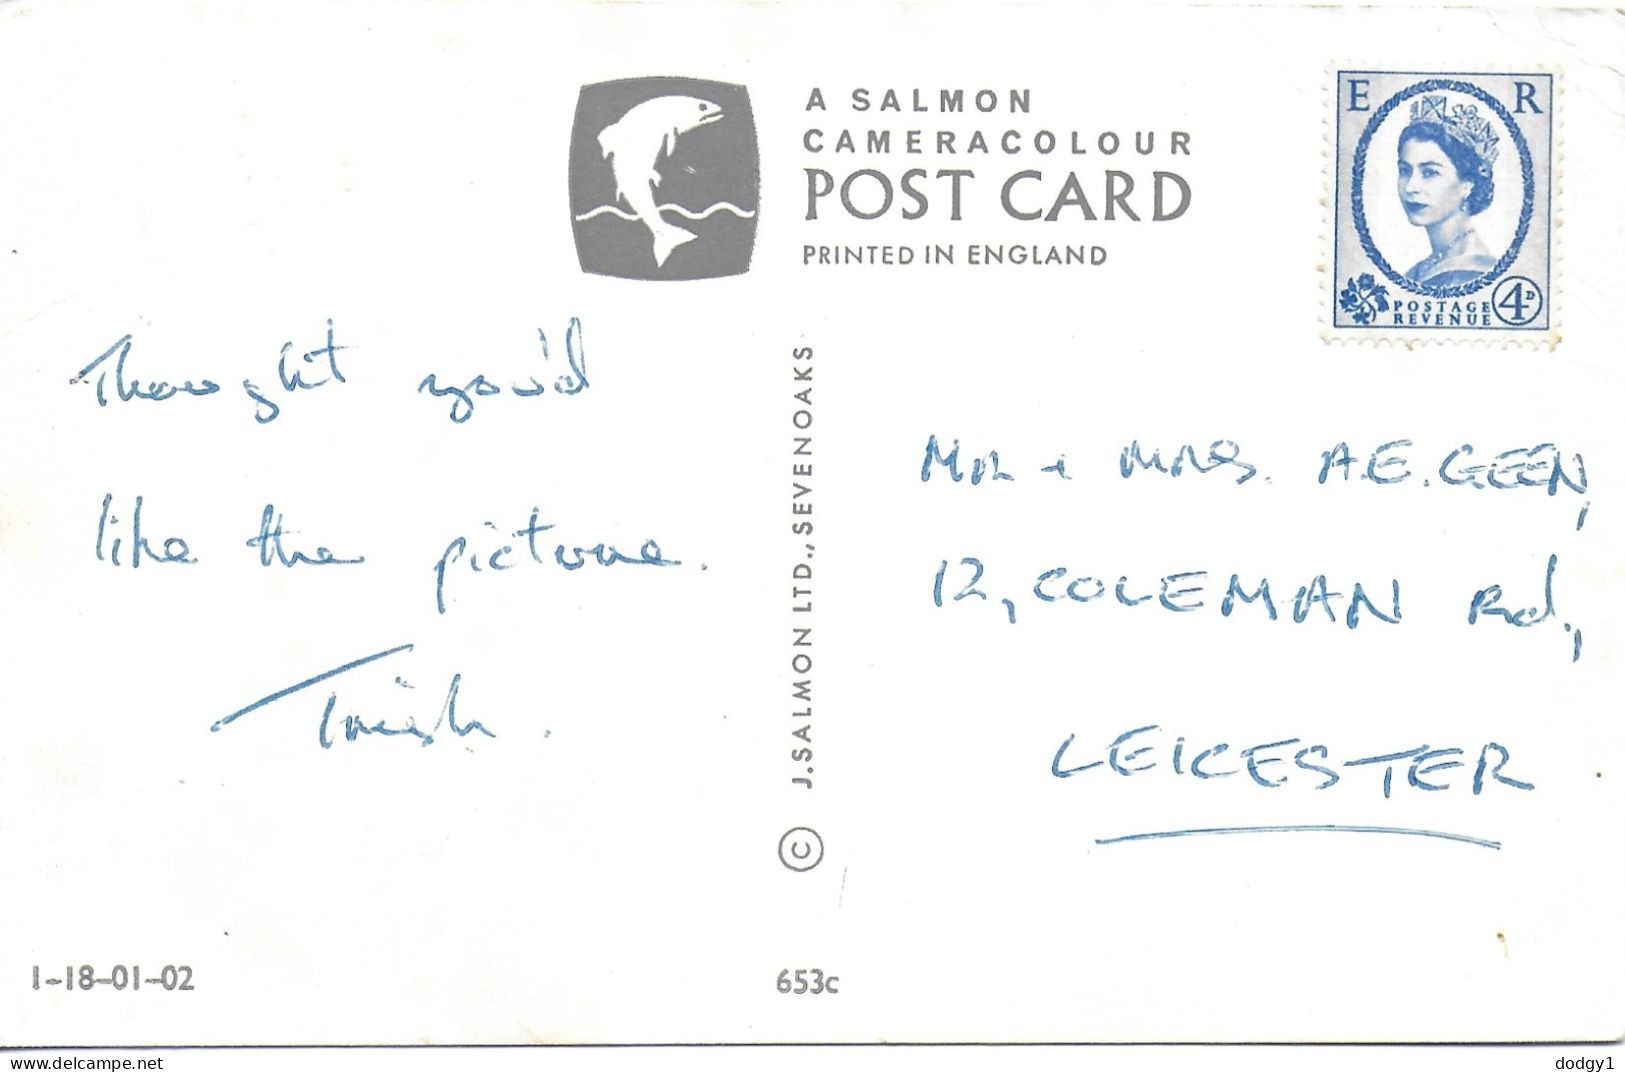 A SALMON
CAMERACOLOUR
POST CARD
PRINTED IN ENGLAND
E R
POSTAGE
REVENUE
4D
Thought you'd
like the picture.
Trish.
J. SALMON LTD., SEVENOAKS
©
MR + MRS. A.E. GEEN,
12, COLEMAN Rd.,
LEICESTER
1-18-01-02
653c
www.delcampe.net
dodgy1